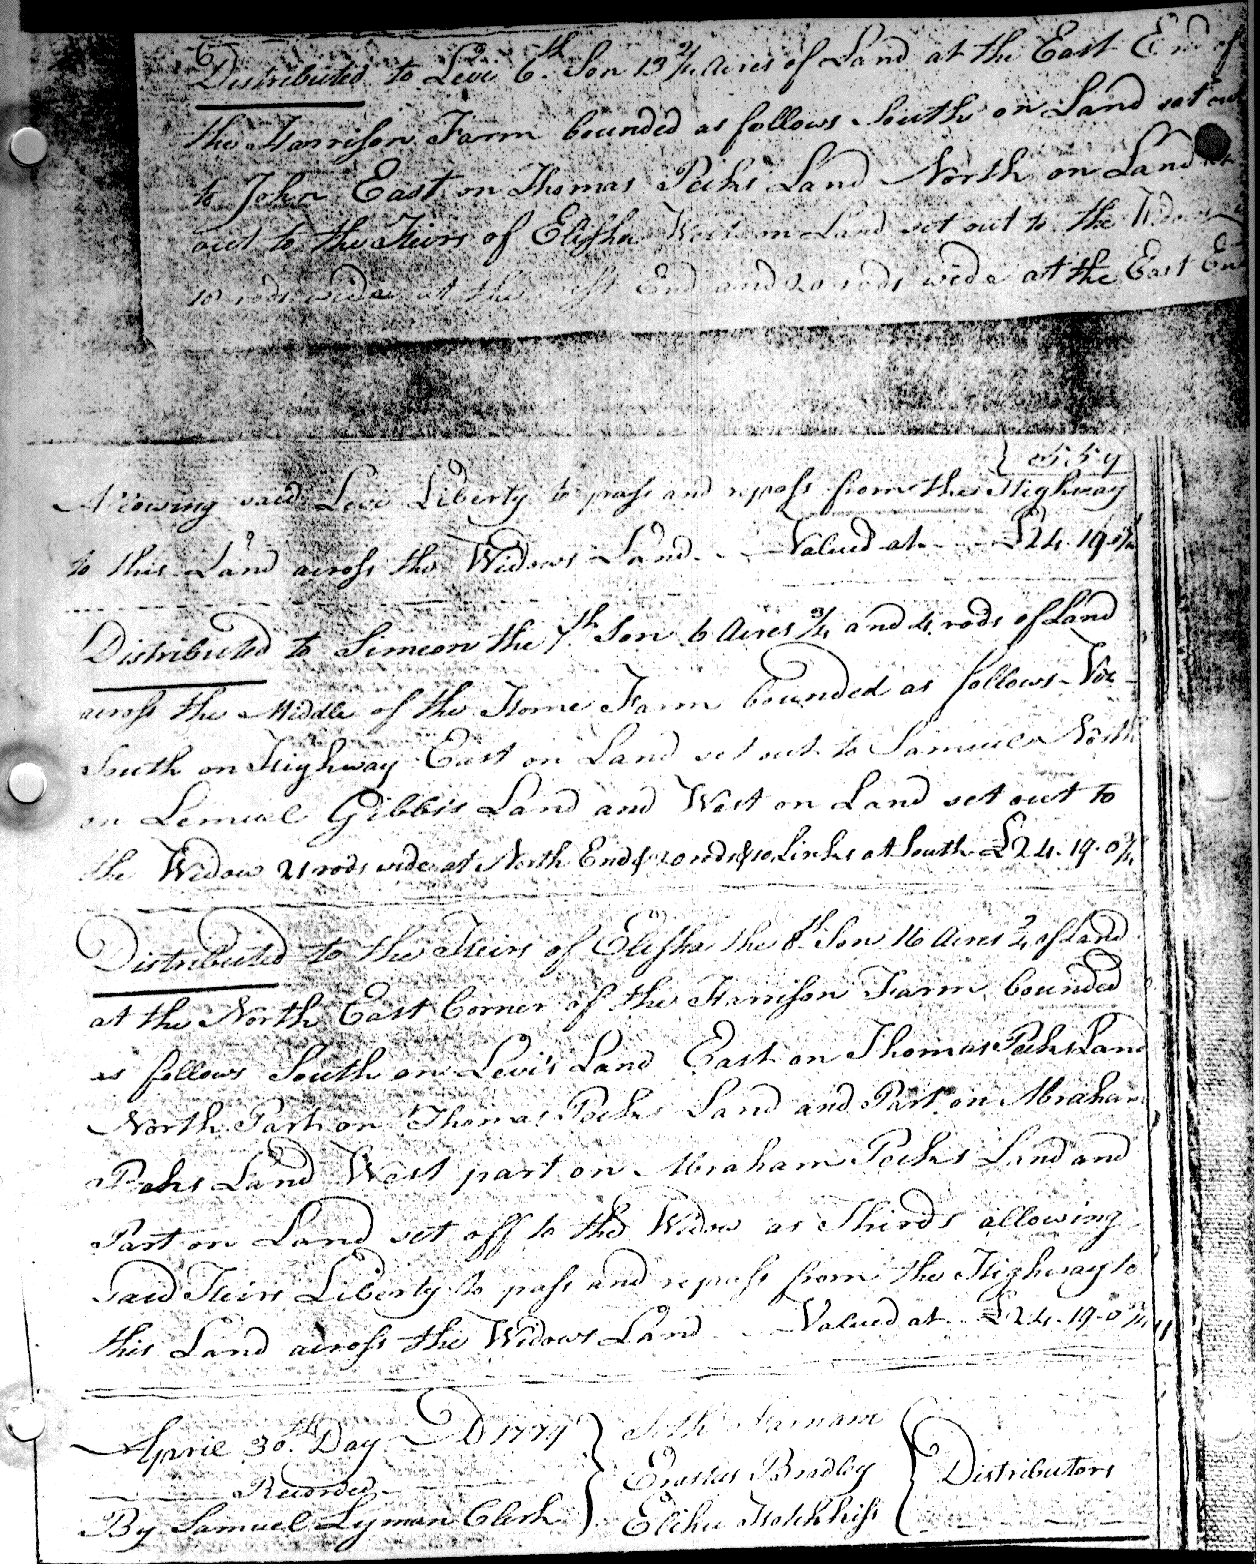 6
Distributed to Levi 6th Son 13 3/4 Acres of Land at the East End of
the Harrison Farm bounded as follows South on Land set out
to John East on Thomas Pecks Land North on Land set
out to the Heirs of Elisha West on Land set out to the Widow
10 rods wide at the west End and 20 rods wide at the East End
559
Allowing said Levi Liberty to pass and repass from the Highway
to this Land across the Widows Land Valued at £24-19-0 3/4
Distributed to Simeon the 7th Son 6 Acres 3/4 and 4 rods of Land
across the Middle of the Home Farm bounded as follows Viz
South on Highway East on Land set out to Samuel North
on Lemuel Gibbs's Land and West on Land set out to
the Widow 21 rods wide at North End & 20 rods & 10 Links at South £24-19-0 3/4
Distributed to the Heirs of Elisha the 8th Son 16 Acres 3/4 of Land
at the North East Corner of the Harrison Farm bounded
as follows South on Levi's Land East on Thomas Pecks Land
North Part on Thomas Pecks Land and Part on Abraham
Pecks Land West part on Abraham Pecks Land and
Part on Land set off to the Widow as Thirds allowing
said Heirs Liberty to pass and repass from the Highway to
this Land across the Widows Land Valued at £24-19-0 3/4
April 30th Day D 1779 Seth Farnam
Recorded Erastus Bradley Distributors
By Samuel Lyman Clerk Elihu Hotchkiss